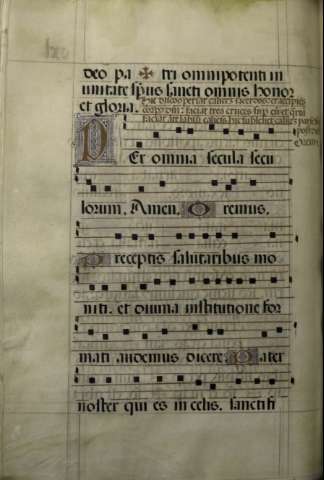 deo pa ✠ tri omnipotenti in
unitate spūs sancti omnis honor
et gloria.
Per omnia secula secu
lorum. Amen. Oremus.
Preceptis salutaribus mo
niti. et divina institutione for
mati audemus dicere. Pater
noster qui es in celis. sanctifi